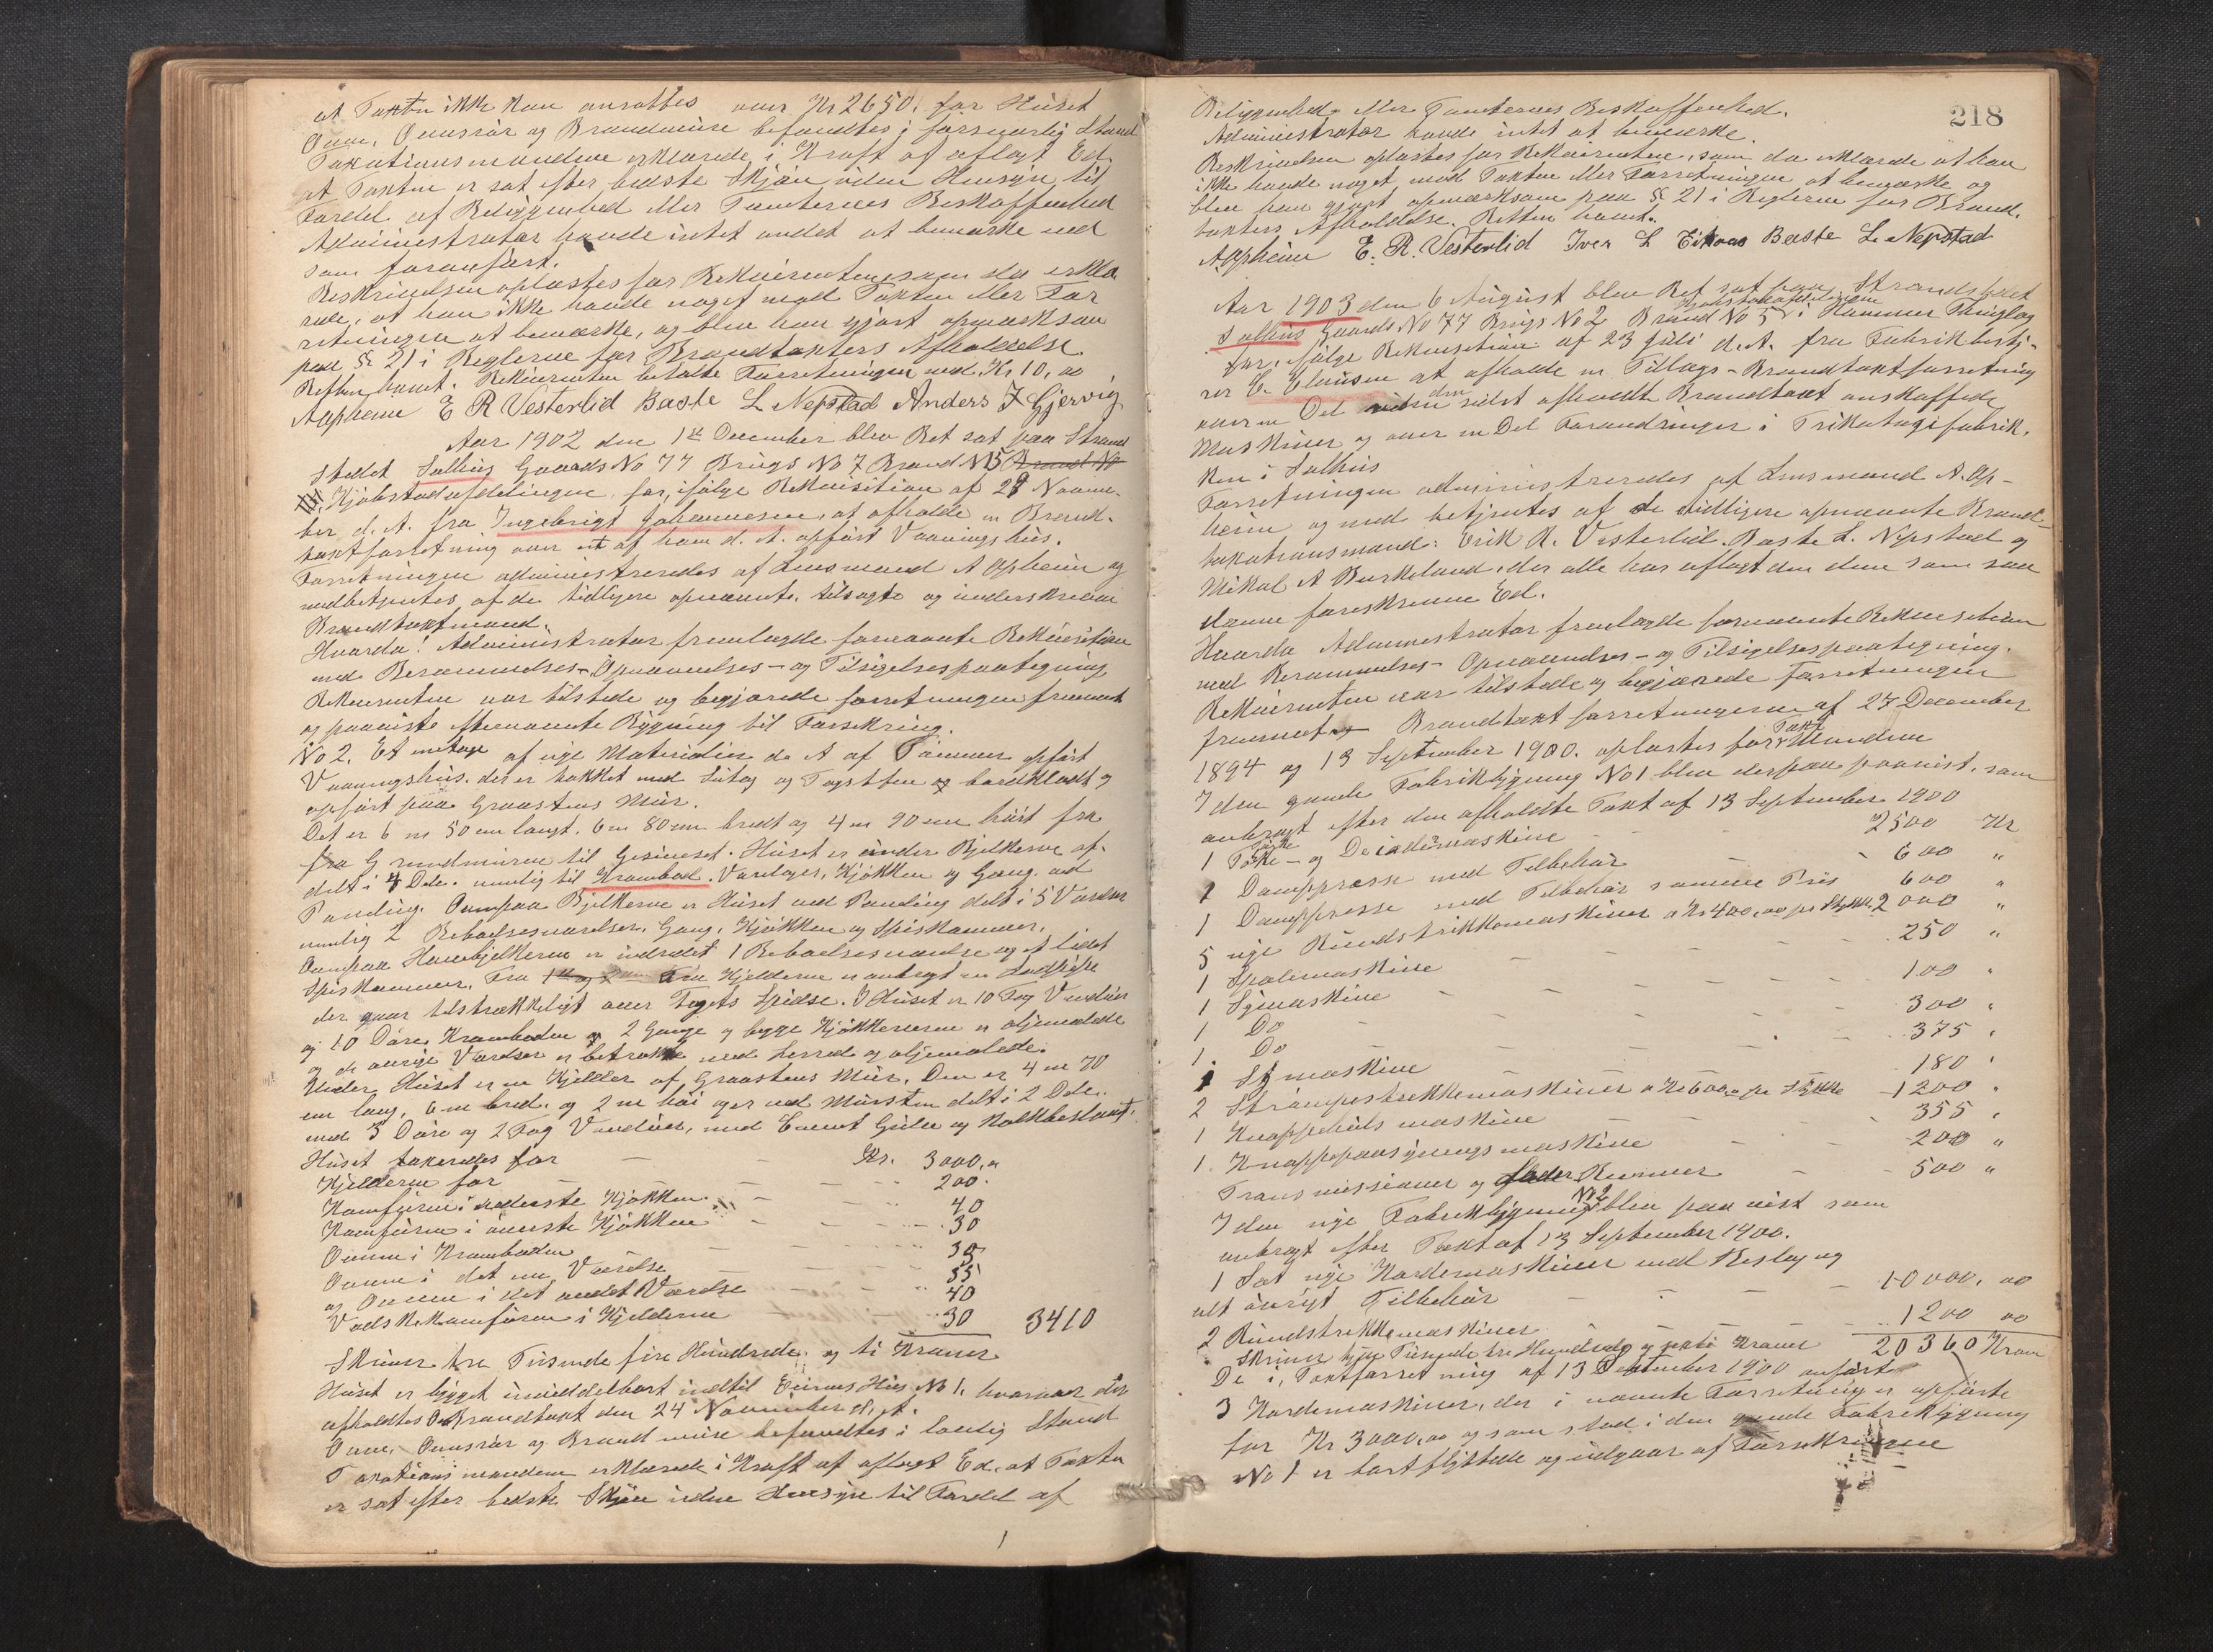 at Taxten ikke kan ansættes over Kr 2650. for Huset
Ovne, Ovnsrør og Brandmure befandtes i forsvarlig Stand
Taxationsmændene erklærede i Kraft af aflagt Ed
at Taxten er sat efter bedste Skjøn uden Hensyn til
Fordel af Beliggenhed eller Tomternes Beskaffenhed
Administrator havde intet andet at bemærke end
som foranført.
Beskrivelsen oplæstes for Rekvirenten, som da erklæ
rede, at han ikke havde noget mod Taxten eller For
retningen at bemærke, og blev han gjort opmærksom
paa § 21 i Reglerne for Brandtaxters Afholdelse
Retten hævet. Rekvirenten betalte Forretningen med Kr 10,00
AOpheim E R Vesterlid Baste L Nepstad Anders J Gjervig
Aar 1902 den 1ste December blev Ret sat paa Strand
stedet Salhus Gaards No 77 Brugs No 7 Brand No 5 Brand No
Kjøbstadafdelingen, for, ifølge Rekvisition af 28 Novem-
ber d. A. fra Ingebrigt Johannesen, at afholde en Brand-
taxtforretning over et af ham d. A. opført Vaaningshus.
Forretningen administreredes af Lensmand A Opheim og
medbetjentes af de tidligere opnævnte, tilsagte og underskrevne
Brandtaxtmænd.
Hvorda! Administrator fremlagde fornævnte Rekvisition
med Berammelses- Opnævnelses- og Tilsigelsespaategning
Rekvirenten var tilstede og begjærede forretningen fremmet
og paaviste efternævnte Bygning til Forsikring.
No 2. Et 1 etages af nye Materialier d. A af Tømmer opført
Vaaningshus. det er tækket med Sutag og Tagsten og bordklædt og
opført paa Graastens Mur.
Det er 6 m 50 cm langt. 6 m 80 cm bredt og 4 m 90 cm høit fra
fra Grundmuren til Gesimset. Huset er under Bjelkerne af-
delt i 4 Dele. nemlig til Krambod. Værelser, Kjøkken og Gang ved
Panding. Ovenpaa Bjelkerne er Huset ved Panding delt i 5 Værelser
nemlig 2 Beboelsesværelser, Gang, Kjøkken og Spiskammer.
Ovenpaa Hanebjelkerne er indredet 1 Beboelsesværelse og et lidet
Spiskammer. Fra 1ste og 2 Fra Kjelderne er anbragt en Ludpibe
der gaar tilstrækkeligt over Tagets Spidse. I Huset er 10 Fag Vinduer
og 10 Døre. Kramboden og 2 Gange og begge Kjøkkenerne er oljemalede
og de øvrige Værelser er betrukne med Lerred og oljemalede.
Under Huset er en Kjelder af Graastens Mur. Den er 4 m 70
cm lang, 6 m bred, og 2 m høi og er ved Mursten delt i 2 Dele.
med 3 Døre og 2 Fag Vinduer, med Cement Gulv og Kalkbeslaaet.
Huset taxeredes for Kr. 3000,00
Kjelderen for 200.
Komfuren i nederste Kjøkken 40
Komfuren i øverste Kjøkken 30
Ovnen i Kramboden 30
Ovnen i det ene Værelse 35
og Ovnen i det andet Værelse 40
Vadskekomfuren i Kjelderen 30 3410
Skriver tre Tusinde fire Hundrede og ti Kroner
Huset er bygget umiddelbart indtil Eierens Hus No 1, hvorover der
afholdtes Brandtaxt den 24 November d. A.
Ovne, Ovnsrør og Brandmure befandtes i lovlig Stand
Taxationsmændene erklærede i Kraft af aflagt Ed, at Taxten
er sat efter bedste Skjøn uden Hensyn til Fordel af
1
218
Beliggenhed eller Tomternes Beskaffenhed.
Administrator havde intet at bemærke.
Beskrivelsen oplæstes for Rekvirenten, som da erklærede at han
ikke havde noget mod Taxten eller Forretningen at bemærke og
blev han gjort opmærksom paa § 21 i Reglerne for Brand-
taxters Afholdelse. Retten hævet.
AOpheim E. R. Vesterlid Iver L Eikaas Baste L. Nepstad
Aar 1903 den 6 August blev Ret sat paa Strandstedet
Kjøbstadafdelingen
Salhus Gaards No 77 Brugs No 2 Brand No 5 i Hammer Thinglag
for, ifølge Rekvisition af 23 Juli d. A. fra Fabrikbesty-
rer C. Clausen at afholde en Tillægs-Brandtaxtforretning
over en Del siden den sidst afholdt Brandtaxt anskaffede
Maskiner og over en Del Forandringer i Trikotagefabrik-
ken i Salhus
Forretningen administreredes af Lensmand A. Op-
heim og med betjentes af de tidligere opnævnte Brand-
taxationsmænd: Erik R. Vesterlid. Baste L. Nepstad og
Mikal A Burkeland, der alle har aflagt den dem som saa
danne foreskrevne Ed.
Hvorda Administrator fremlagde fornævnte Rekvisition
med Berammelses- Opnævnelses- og Tilsigelsespaategning.
Rekvirenten var tilstede og begjærede Forretningen
fremmet og Brandtaxtforretningerne af 27 December
1894 og 13 September 1900. oplæstes for Taxtmændene
I den gamle Fabrikbygning No 1 blev derpaa paavist, som
anbragt efter den afholdte Taxt af 13 September 1900
1 Tørke- og Decadermaskine 2500 Kr
1 Damppresse med Tilbehør 600 "
1 Damppresse med Tilbehør samme Pris 600 "
5 nye Rundstrikkemaskiner a Kr 400,00 pr Stykke 2000 "
1 Spolemaskine 250 "
1 Symaskine 100 "
1 Do 300 "
1 Do 375 "
1 Symaskine 180 "
2 Strømpestrikkemaskiner a Kr 600,00 pr Stykke 1200 "
1 Knappehuls maskine 355 "
1 Knappepaasyningsmaskine 200 "
Transmissioner og Læder Remmer 500 "
I den nye Fabrikbygning No 2 blev paavist som
anbragt efter Taxt af 13 September 1900.
1 Sæt nye Kardemaskiner med Beslag og
alt øvrigt Tilbehør 10000,00
2 Rundstrikkemaskiner 1200 00
Skriver tyve Tusinde tre Hundrede og seksti Kroner 20360 Kroner
De i Taxtforretning af 13 September 1900 anførte
3 Kardemaskiner, der i nævnte Forretning er opførte
for Kr 3000,00 og som stod i den gamle Fabrikbygning
No 1 er bortflyttede og udgaar af Forsikringen